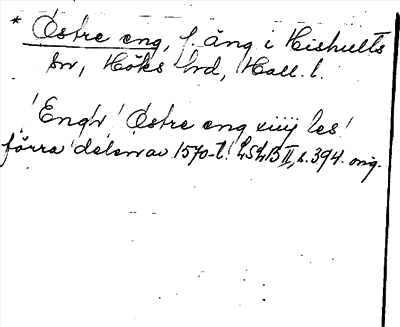 * Östre eng, f. äng i Hishults
sn, Höks hd, Hall. l.
'Engh' Östre eng xiiij les'
förra delen av 1570-t. LSLB II, s. 394. orig.